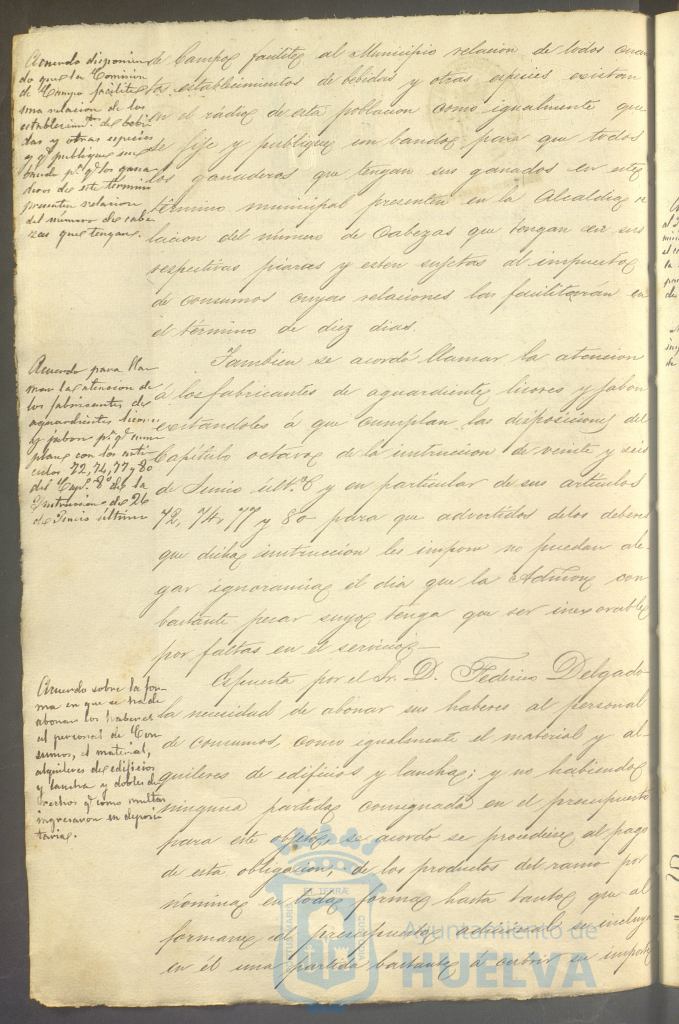 Acuerdo disponien-
do que la Comision
de Campo facilite
una relacion de los
establecimtos de bebi-
das y otras especies
y q publique un
bando pa q los gana-
deros de este termino
presenten relacion
del número de cabe-
zas que tengan.
de Campo facilite al Municipio relacion de todos cuan
tos establecimientos de bebidas y otras especies existan
en el rádio de esta poblacion como igualmente que
se fije y publique un bando para que todos
los ganaderos que tengan sus ganados en este
término municipal presenten en la Alcaldia re
lacion del número de Cabezas que tengan en sus
respectivas piaras y esten sujetas al impuesto
de consumos cuyas relaciones las facilitarán en
el término de diez dias.
Acuerdo para lla-
mar la atencion de
los fabricantes de
aguardientes licores
y jabon pa q cum-
plan con los arti-
culos 72, 74, 77 y 80
del Capo 8º de la
Instruccion de 26
de Junio último
Tambien se acordó llamar la atencion
á los fabricantes de aguardiente, licores y jabon
excitandoles á que cumplan las disposiciones del
Capítulo octavo de la instruccion de veinte y seis
de Junio últo y en particular de sus artículos
72, 74, 77 y 80 para que advertidos de los deberes
que dicha instruccion les impone no puedan ale-
gar ignorancia el dia que la Admon con
bastante pesar suyo tenga que ser inexorable
por faltas en el servicio.
Acuerdo sobre la for-
ma en que se ha de
abonar los haberes
al personal de Con-
sumos, el material,
alquileres de edificios
y lancha y dobles de-
rechos q como multas
ingresaron en deposi-
taria.
Espuesta por el Sr. D. Federico Delgado
la necesidad de abonar sus haberes al personal
de consumos, como igualmente el material y al-
quileres de edificios y lancha; y no habiendo
ninguna partida consignada en el presupuesto
para este objeto, se acordó se procediese al pago
de esta obligacion, de los productos del ramo por
nómina en toda forma hasta tanto que al
formarse el presupuesto adicional se incluya
en él una partida bastante á cubrir su importe
Ayuntamiento de
HUELVA